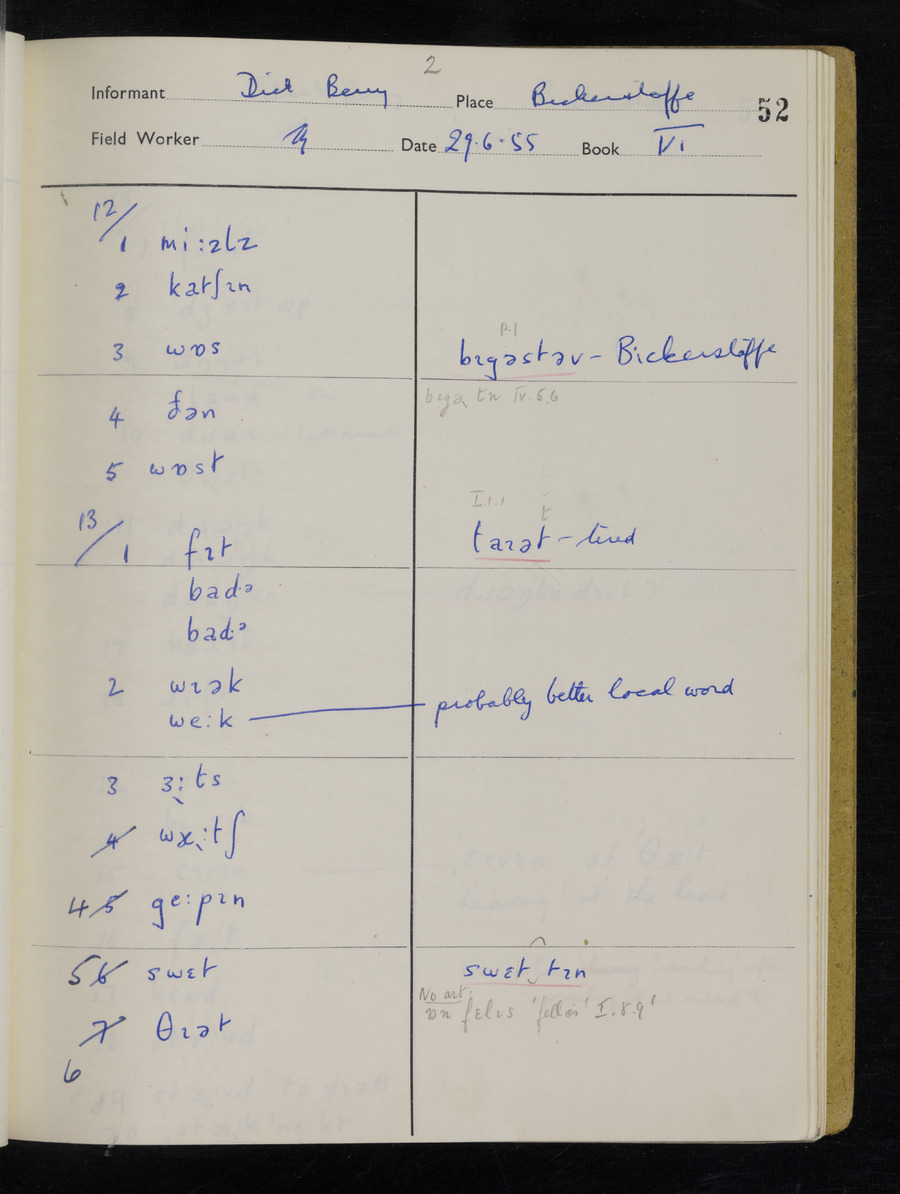 2
Informant Dick Berry Place Bickerstaffe
52
Field Worker Date 29.6.55 Book VI
12/1 mi:zlz
2 katʃɪn
3 wɒs
p.1
bɪgəstəv – Bickerstaffe
4 fən
bɪgə tn IV.5.6
5 wɒst
I.1.1
t
13/1 fɪt
taɪət – tired
bad·ə
bad·ə
2 wɪək
we:k — probably better local word
3 ɜ:ts
4 wɛ:tʃ
4 5 ge:pɪn
5 6 swɛt
swɛt‿tɪn
No art.
ɒn fɛlɪs 'fellies' I.8.9'
7 θɪət
6